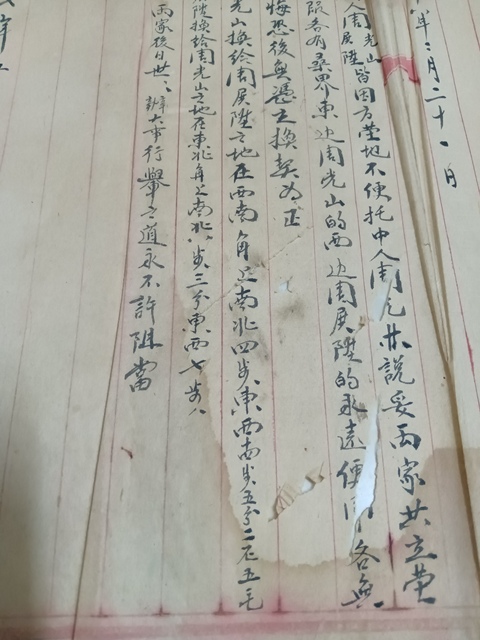 年二月二十一日
人周光山周展陞皆因方塋地不便托中人周凡林說妥兩家共立塋
限各有桑界東边周光山的西边周展陞的永遠便用各無
悔恐後無憑立換契為正
光山換給周展陞之地在西南角上南北四步東西南步五分二厘五毛
陞換給周光山之地在東北角上南北八步三分東西七步八
兩家後日世々辦大事行舉之道永不許阻當